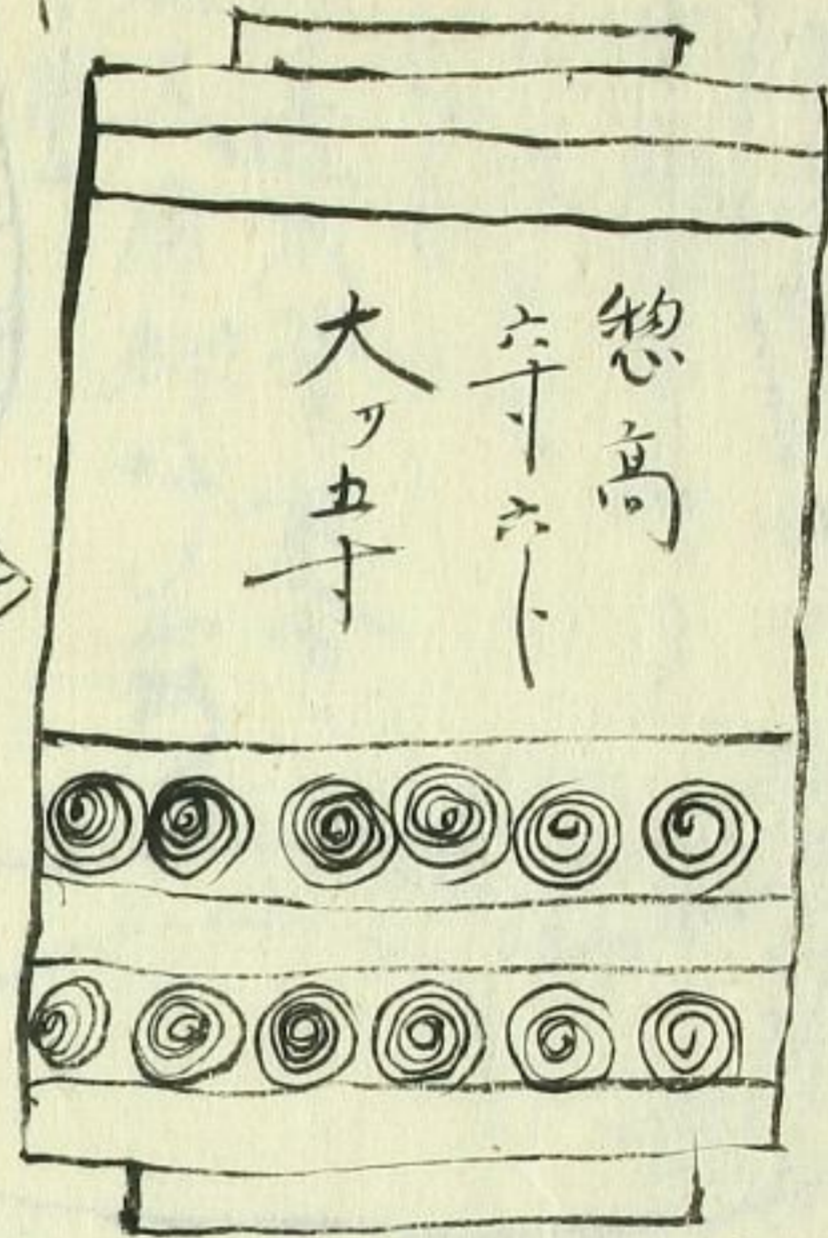 惣高
六寸六卜
大サ五寸